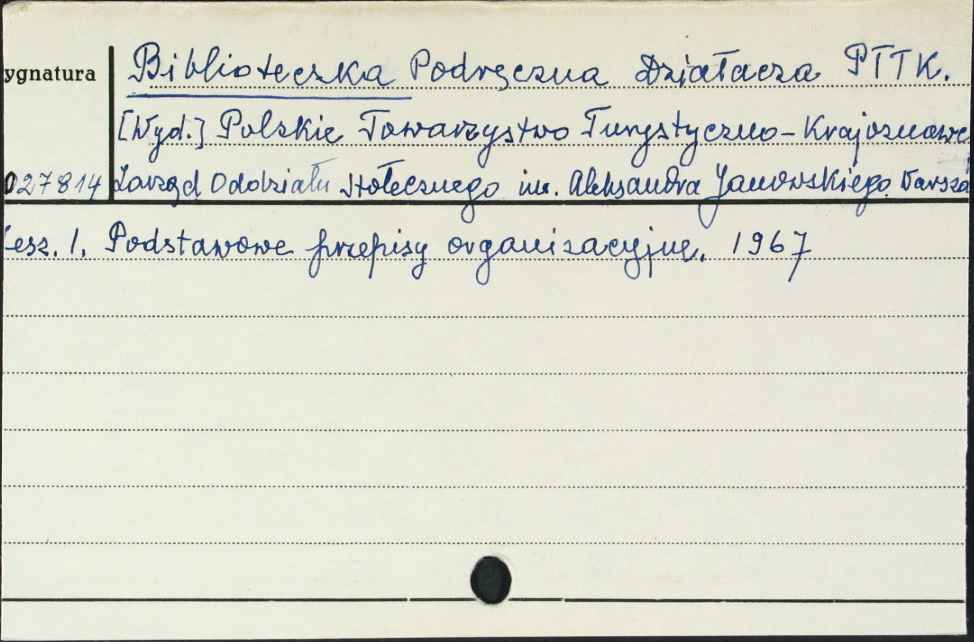 ygnatura
Biblioteczka Podręczna Działacza PTTK.
[Wyd.] Polskie Towarzystwo Turystyczno-Krajoznawcze
027814 Zarząd Oddziału Stołecznego im. Aleksandra Janowskiego. Warsza
zesz. 1. Podstawowe przepisy organizacyjne. 1967